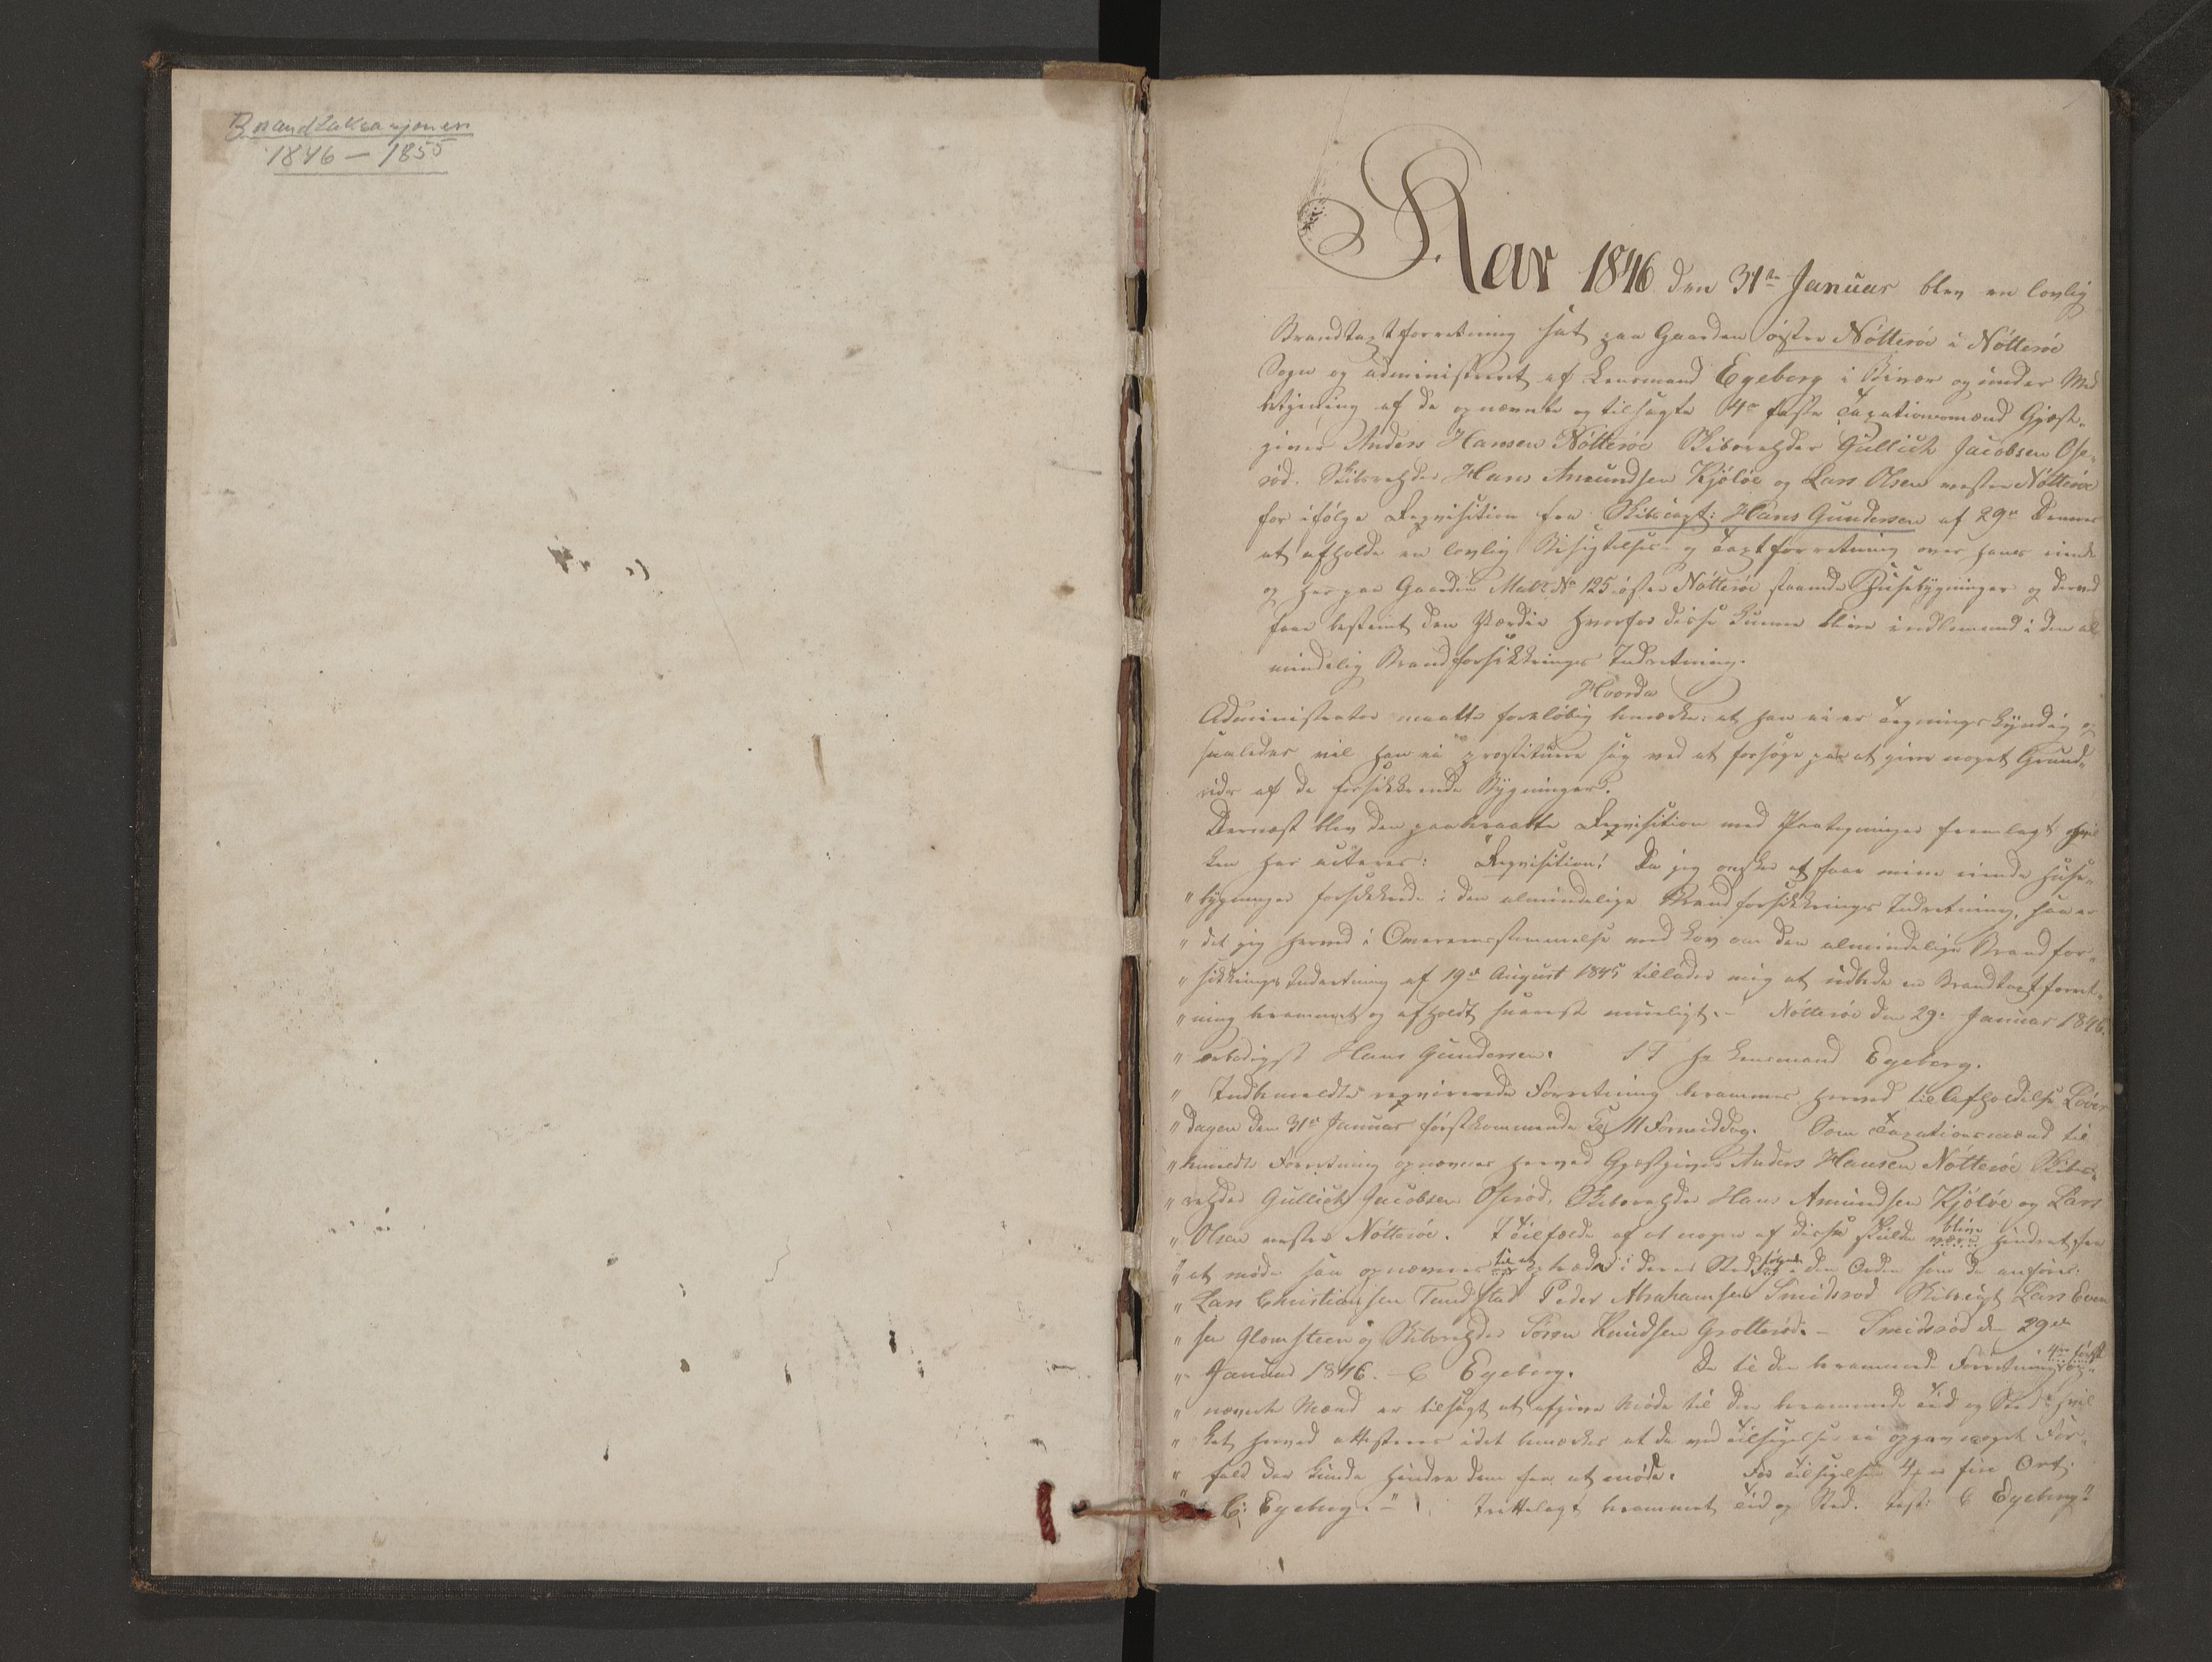 Brandtaksasjonen
1846 – 1855
Aar 1846 den 31te Januar blev en lovlig
Brandtaxtforretning sat paa Gaarden østre Nötteröe i Nötteröe
Sogn og administreret af Lensmand Egeberg i Overvær og under Med
betjening af de opnævnte og tilsagte 4re faste Taxationsmænd Gjæst-
giver Anders Hansen Nötteröe Skibsrehder Gullich Jacobsen Ose-
röd. Skibsrehder Hans Amundsen Kjölöe og Lars Olsen vestre Nötteröe
for ifølge Reqvisition fra Skibscapt: Hans Gundersen af 29de Dennes
at afholde en lovlig Besigtelses- og Taxtforretning over hans eiende
og her paa Gaarden Matr No 125 östre Nötteröe staaende Huusebygninger og derved
faae bestemt den Værdie hvorfor disse kunne blive indlemmed i den al
mindelig Brandforsikkrings Indretning.
Hvorda
Administrator maatte foreløbig bemærke: at han ei er Tegningskyndig og
saaledes vil han ei prostituere sig ved at forsøge paa at give noget Grund-
rids af de forsikkrende Bygninger.
Dernæst blev den paaberaabte Reqvisition med Paategninger fremlagt hvil
ken her acteres: "Reqvisition! Da jeg ønsker at faae mine eiende Huse-
" bygninger forsikkrede i den almindelige Brandforsikkrings Indretning, saa er
" det jeg herved i Overeensstemmelse med Lov om den almindelige Brandfor-
" sikkrings Indretning af 19de August 1845 tillader mig at udbede en Brandtaxtforret-
" ning berammet og afholdt snarest mueligt. – Nötteröe den 29de Januar 1846.
" ærbødigst Hans Gundersen. S T Hr Lensmand Egeberg.
" Indbemeldte reqvirerede Forretning berammes herved til Afholdelse Löver
" dagen den 31te Januar förstkommende Kl 11 Formiddag. Som Taxationsmænd til
" bemeldte Forretning opnævnes herved Gjæstgiver Anders Hansen Nötteröe Skibs-
" rehder Gullich Jacobsen Oseröd, Skibsrehder Hans Amundsen Kjölöe og Lars
" Olsen vestre Nötteröe. I Tilfælde af at nogen af disse skulde være blive hindret fra
" at møde saa opnævnes til at træde i deres Sted følgende i den Orden som de anføres:
" Lars Christiansen Tandstad Peder Abrahamsen Smidsröd Skibscapt Lars Even
" sen Glomsteen og Skibsrehder Sören Knudsen Grotteröd. – Smidsröd den 29de
" Januar 1846. C Egeberg. De til den berammede Forretning 4re først op-
" nævnte Mænd er tilsagt at afgive Møde til den berammede Tid og Sted hvil
" ket herved attesteres idet bemærkes at de ved Tilsigelsen ei opgav noget For-
" fald der kunde hindre dem fra at møde. For Tilsigelsen 4 er fire Ort.
" C: Egeberg. –" Irettelagt berammet Tid og Sted. test: C Egeberg"